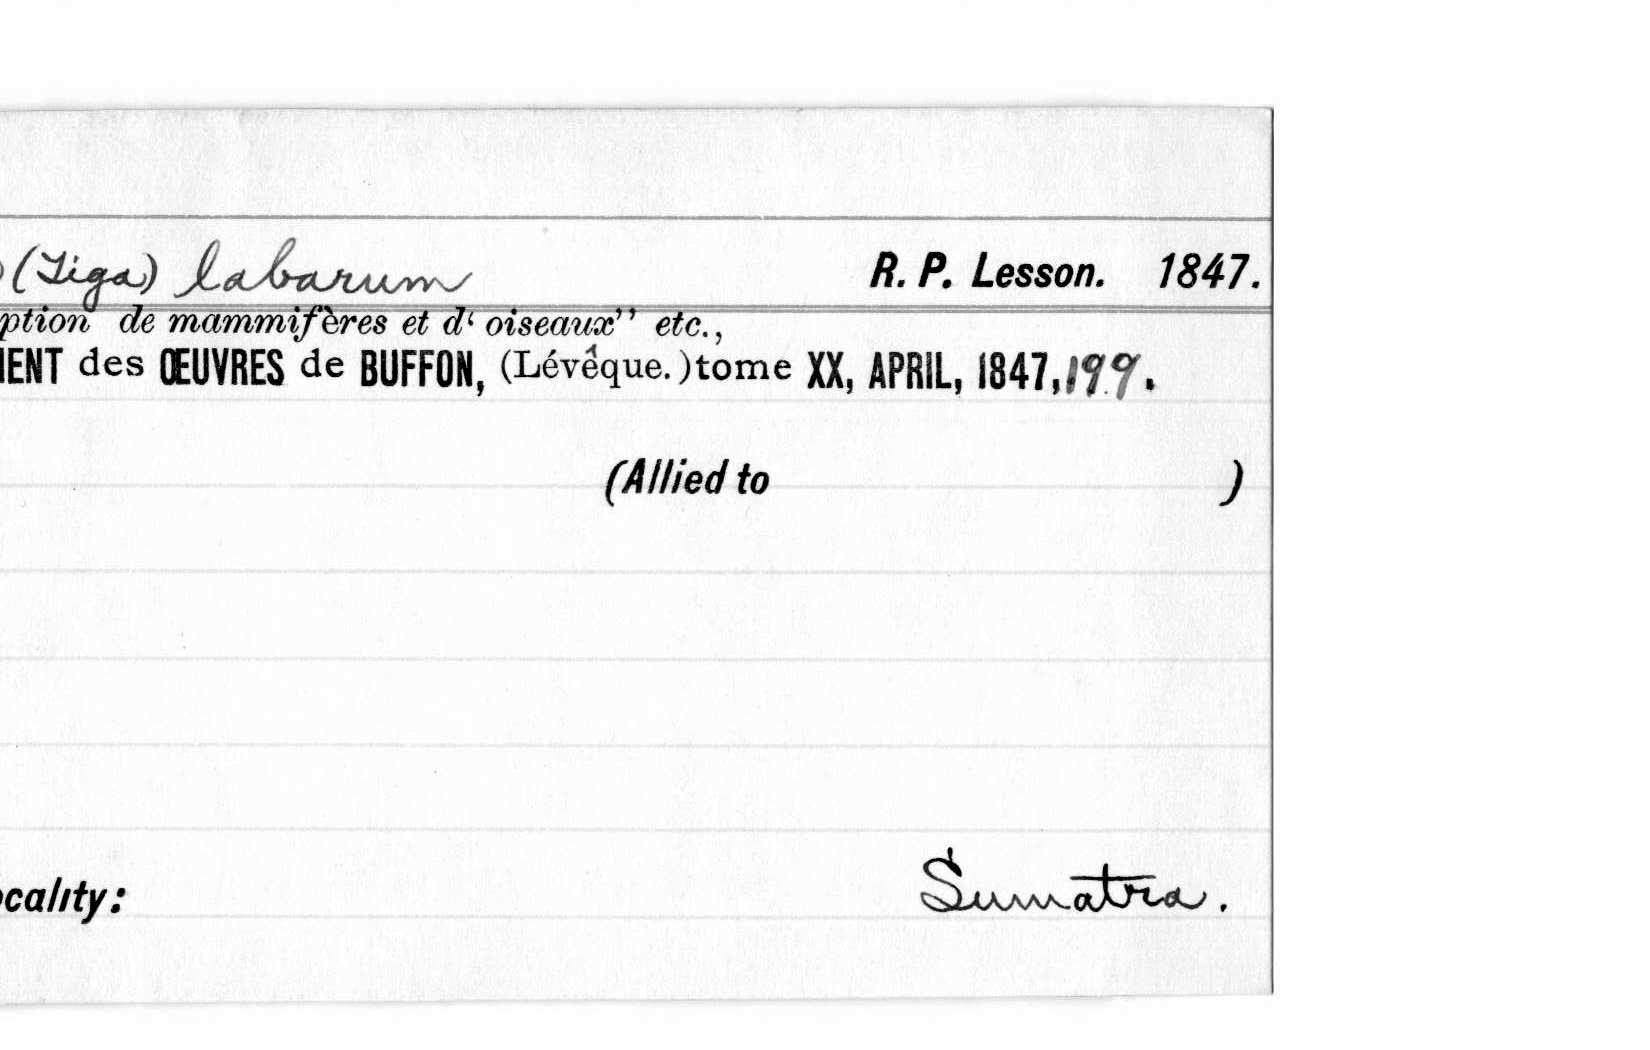 ) (Tiga) labarum R. P. Lesson. 1847.
ption de mammifères et d‘ oiseaux’’ etc.,
MENT des ŒUVRES de BUFFON, (Lévêque.) tome XX, APRIL, 1847, 199.
(Allied to )
ocality: Sumatra.